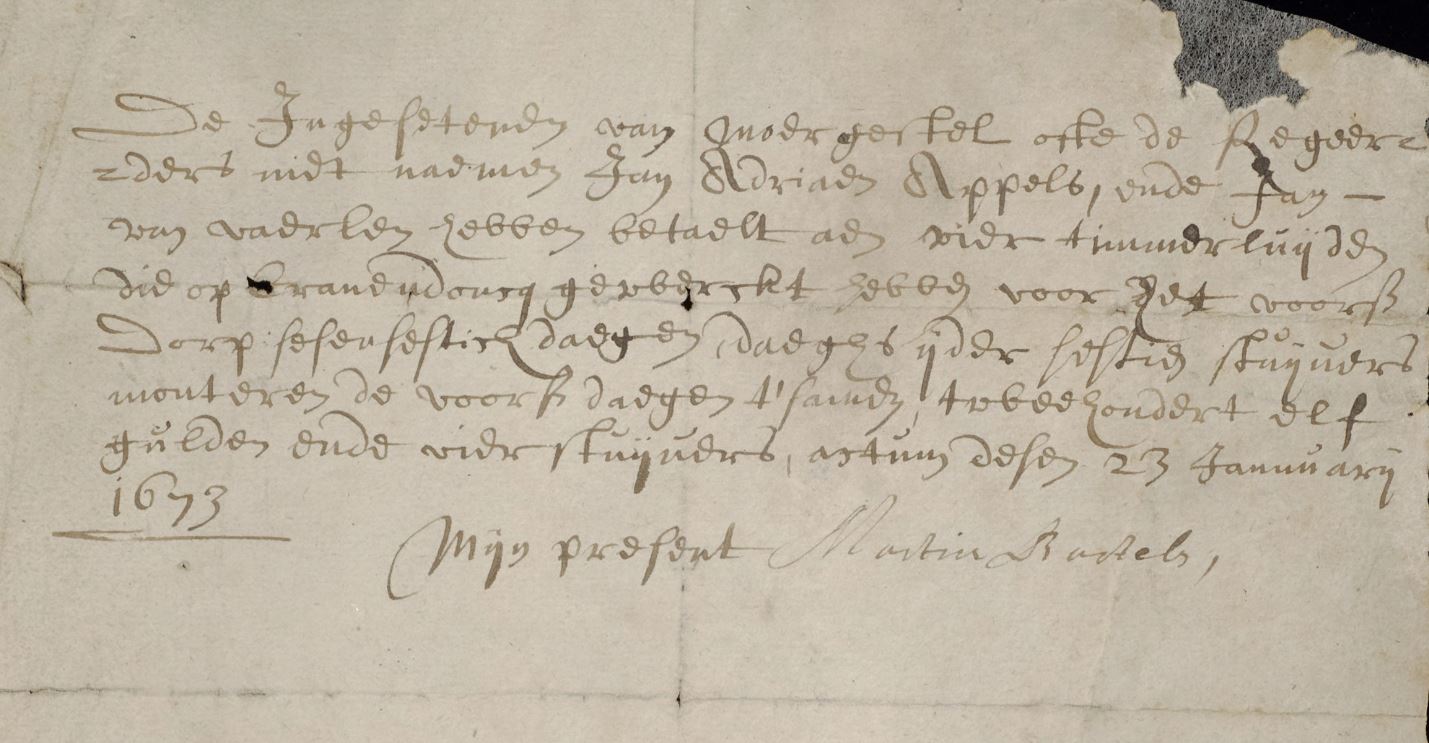 De Ingesetenen van Moergestel ofte de Regeer=
=ders met naemen Jan Adriaen Appels, ende Jan –
van vaerlen hebben betaelt aen vier timmerluijden
die op Cranendoncq gewerckt hebben voor het voors
Dorp sesensestich daegen, daeghs ijder sestien stuijvers
monteren de voors daegen t'samen tweehondert elf
gulden ende vier stuijvers, actum desen 23 Januuarij
1673
Mijn present Martin Bartels,